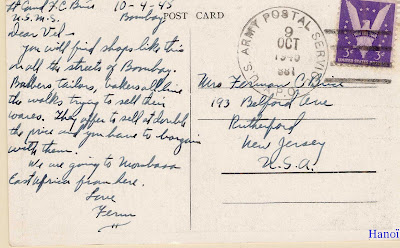 F.C. 10-4-45
U.S.M.S. Bombay
Dear Vel-
you will find shops like this
in all the streets of Bombay.
Barbers, tailors, bakers all line
the walks trying to sell their
wares. They offer to sell at double
the price and you have to bargain
with them.
We are going to Mombasa
East Africa from here.
Love
Ferm
POST CARD
U.S. ARMY POSTAL SERVICE
9
OCT
1945
A.P.O.
3¢ 3¢
Mrs Ferman C.
193 Belford Ave
Rutherford
New Jersey
U.S.A.
Hanoï